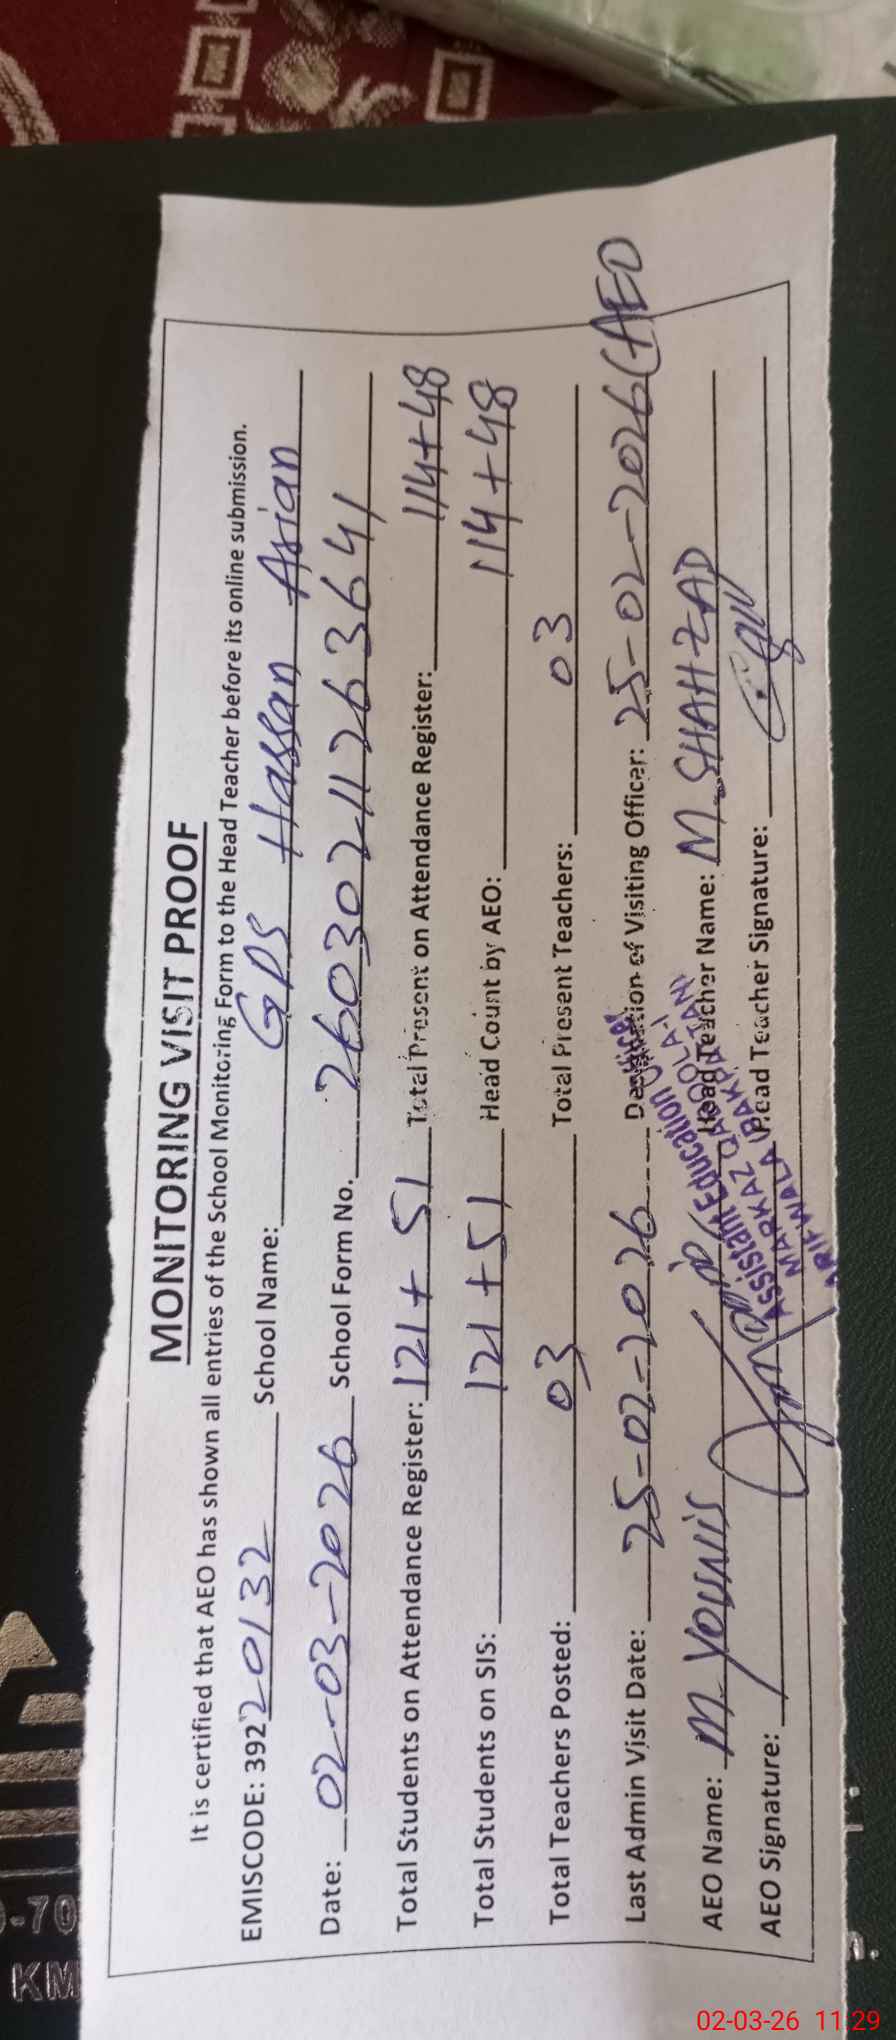 MONITORING VISIT PROOF
It is certified that AEO has shown all entries of the School Monitoring Form to the Head Teacher before its online submission.
EMISCODE: 39220132 School Name: GPS Hassan Arian
Date: 02-03-2026 School Form No. 26030211263641
Total Students on Attendance Register: 121+51 Total Present on Attendance Register: 114+48
Total Students on SIS: 121+51 Head Count by AEO: 114+48
Total Teachers Posted: 03 Total Present Teachers: 03
Last Admin Visit Date: 25-02-2026 Designation of Visiting Officer: 25-02-2026 (AEO
AEO Name: M. YOUNIS Head Teacher Name: M. SHAHZAD
AEO Signature: Head Teacher Signature:
Assistant Education Officer
MARKAZ QABOOLA-I
ARIFWALA (PAKPATTAN)
-70
KM
02-03-26 11:29